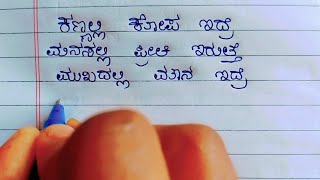 ಕಣ್ಣಲ್ಲಿ ಕೋಪ ಇದ್ರೆ
ಮನಸಲ್ಲಿ ಪ್ರೀತಿ ಇರುತ್ತೆ
ಮುಖದಲ್ಲಿ ಮೌನ ಇದ್ರೆ